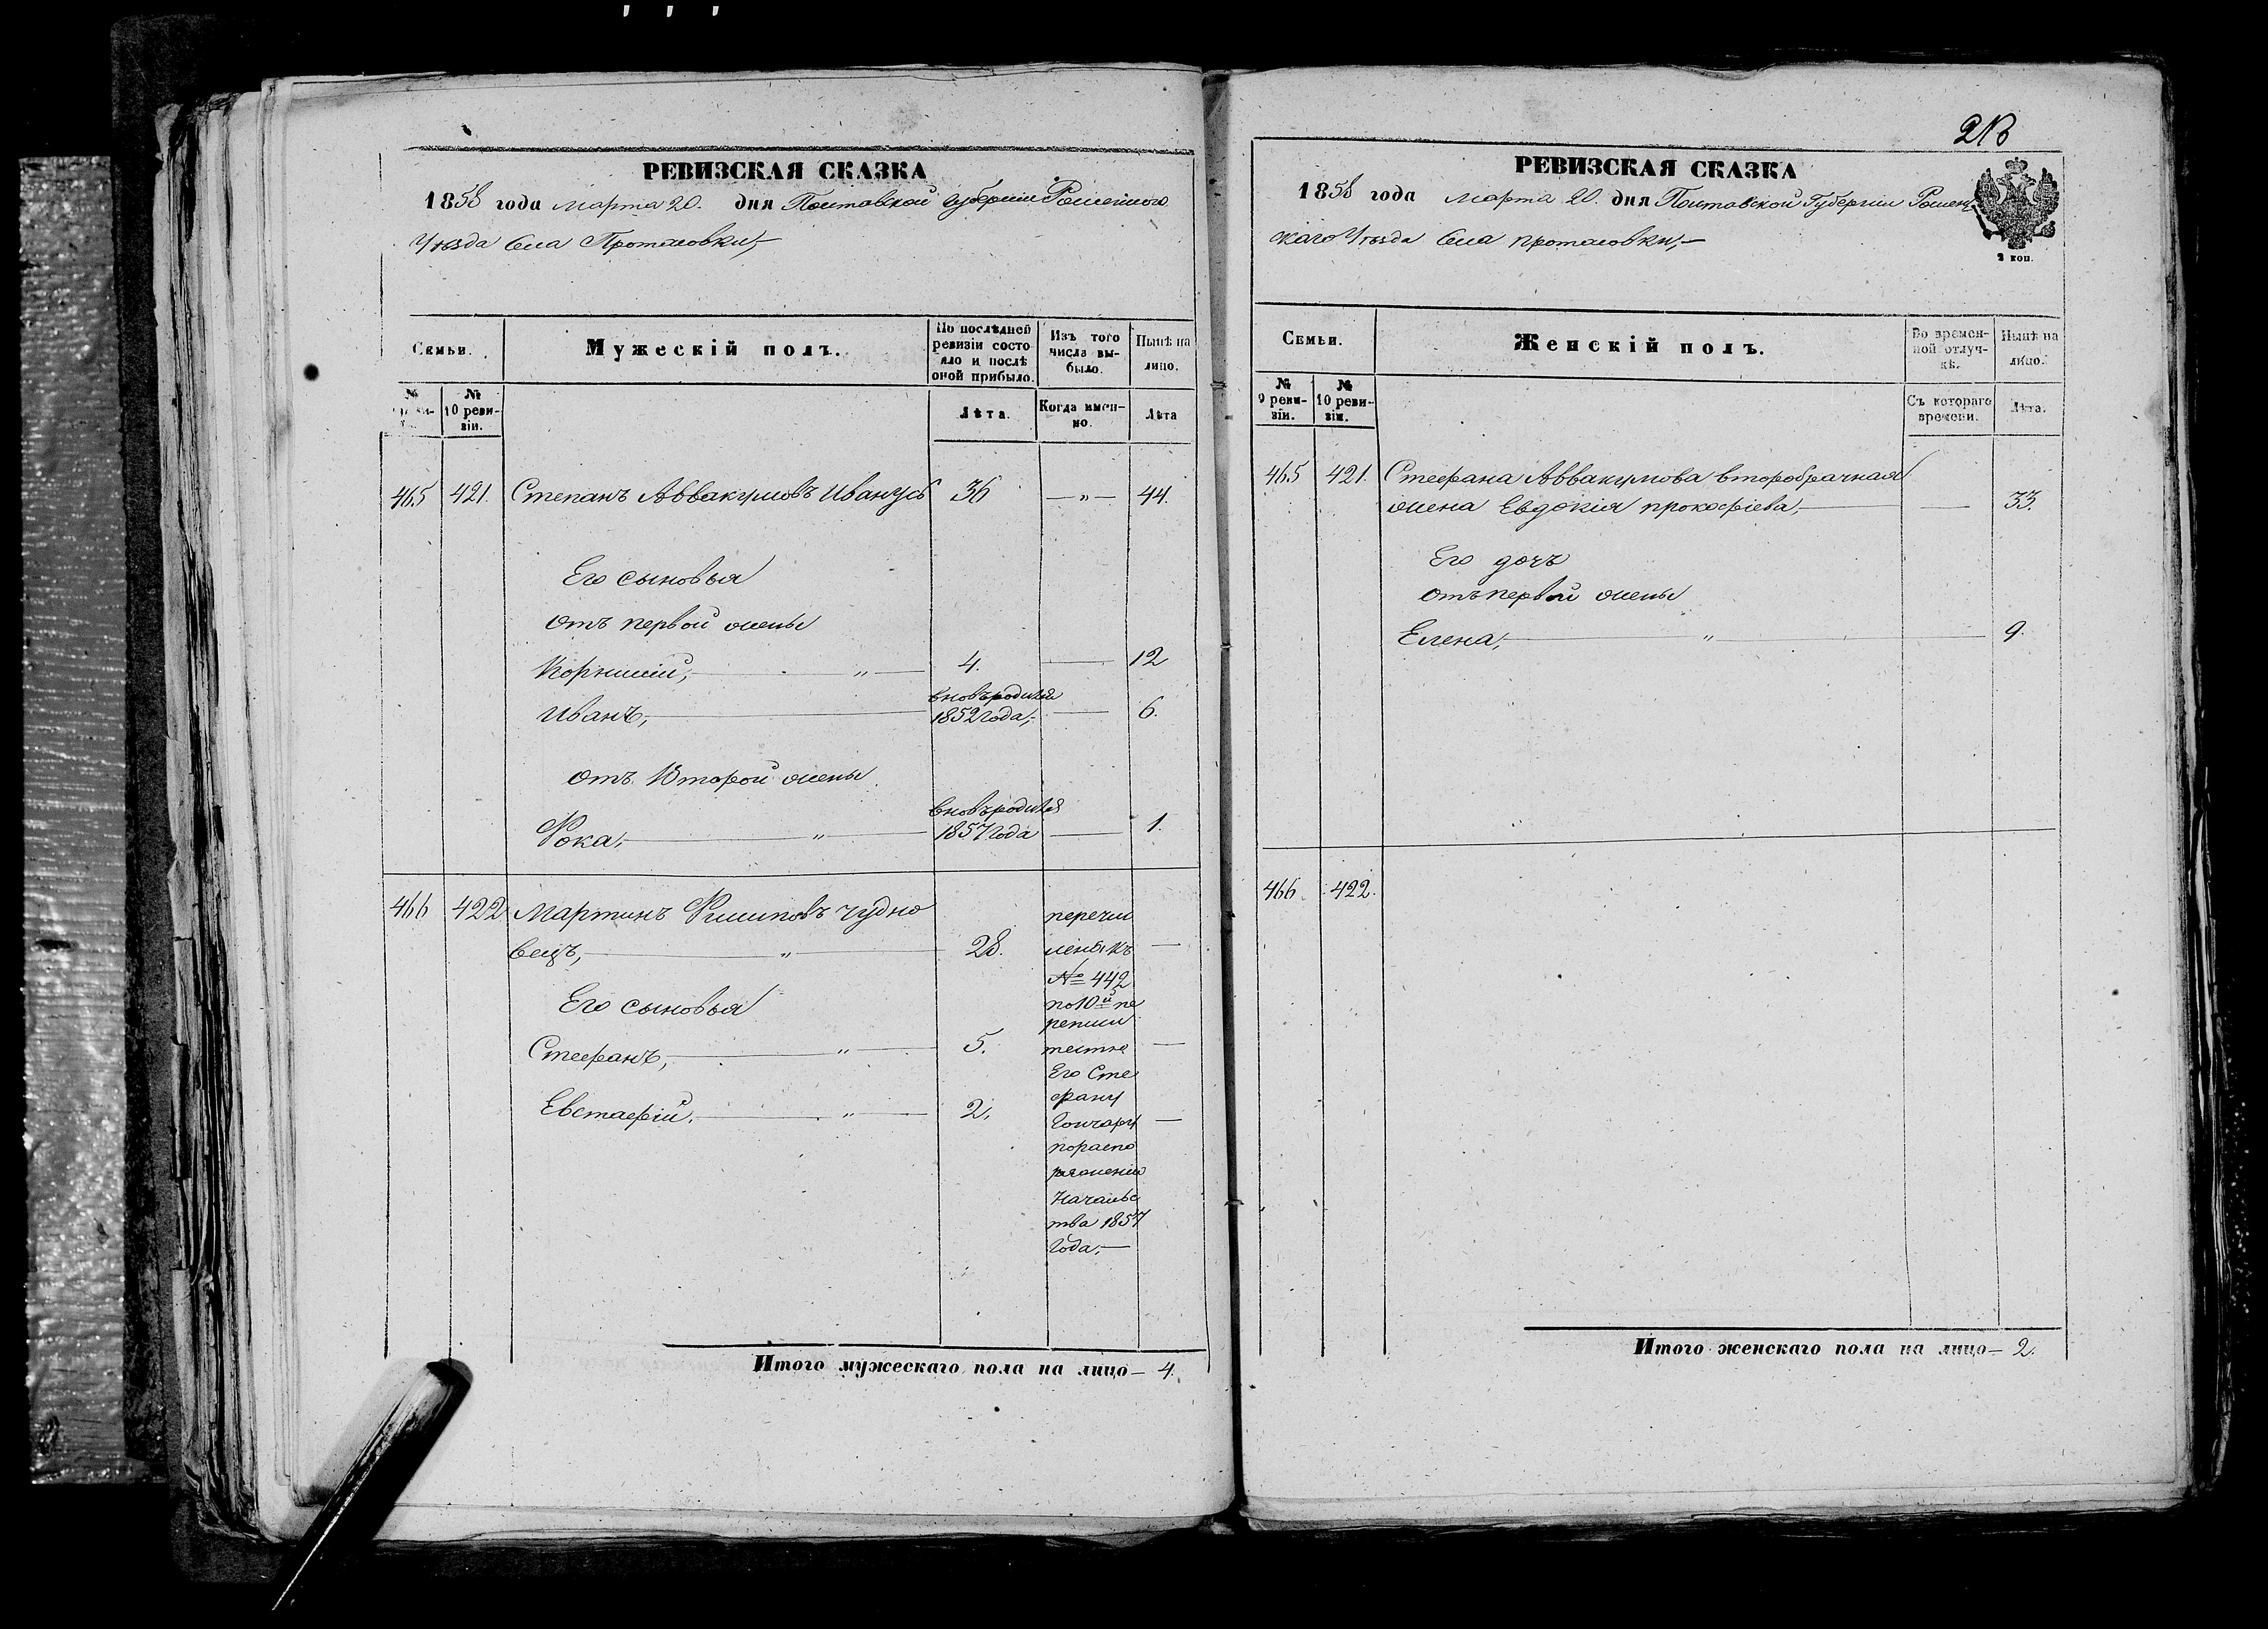 РЕВИЗСКАЯ СКАЗКА
1858 года марта 20. дня Полтавской Губерніи Роменского
Уѣзда Села Протасовки,
Семьи.
Мужескій полъ.
По послѣдней ревизіи состояло и послѣ оной прибыло.
Изъ того числа выбыло.
Нынѣ на лицо.
№ 10 ревизіи.
Лѣта.
Когда именно.
Лѣта
465 421. Степанъ Аввакумовъ Иванусь 36 —„— 44.
Его сыновья
отъ первой жены
Корнилій, „ 4. — 12
вновьродился
Иванъ, 1852 года, — 6.
отъ Второй жены
вновьродился
Фока, „ 1857 года — 1.
466 422 Мартинъ Филиповъ Чудно
вецъ, „ 28.
Его сыновья
Стефанъ, „ 5.
Евстафій, „ 2.
перечи
сленъ къ
№ 442
по 10й пе
реписи
тестю
Его Сте
фану
Гончару
пораспо
ряженію
Начальс
тва 1857
года,
Итого мужескаго пола на лицо— 4.
213
РЕВИЗСКАЯ СКАЗКА
1858 года марта 20. дня Полтавской Губерніи Ромен
скаго Уѣзда Села протасовки,
2 коп.
Семьи.
Женскій полъ.
Во временной отлучкѣ.
Нынѣ на лицо.
№ 9 ревизіи.
№ 10 ревизіи.
Съ котораго времени.
Лѣта.
465 421. Стефана Аввакумова второбрачная
жена Евдокія прокофіева, — 33.
Его дочъ
отъ первой жены
Елена, „ 9.
466. 422.
Итого женскаго пола на лицо— 2.